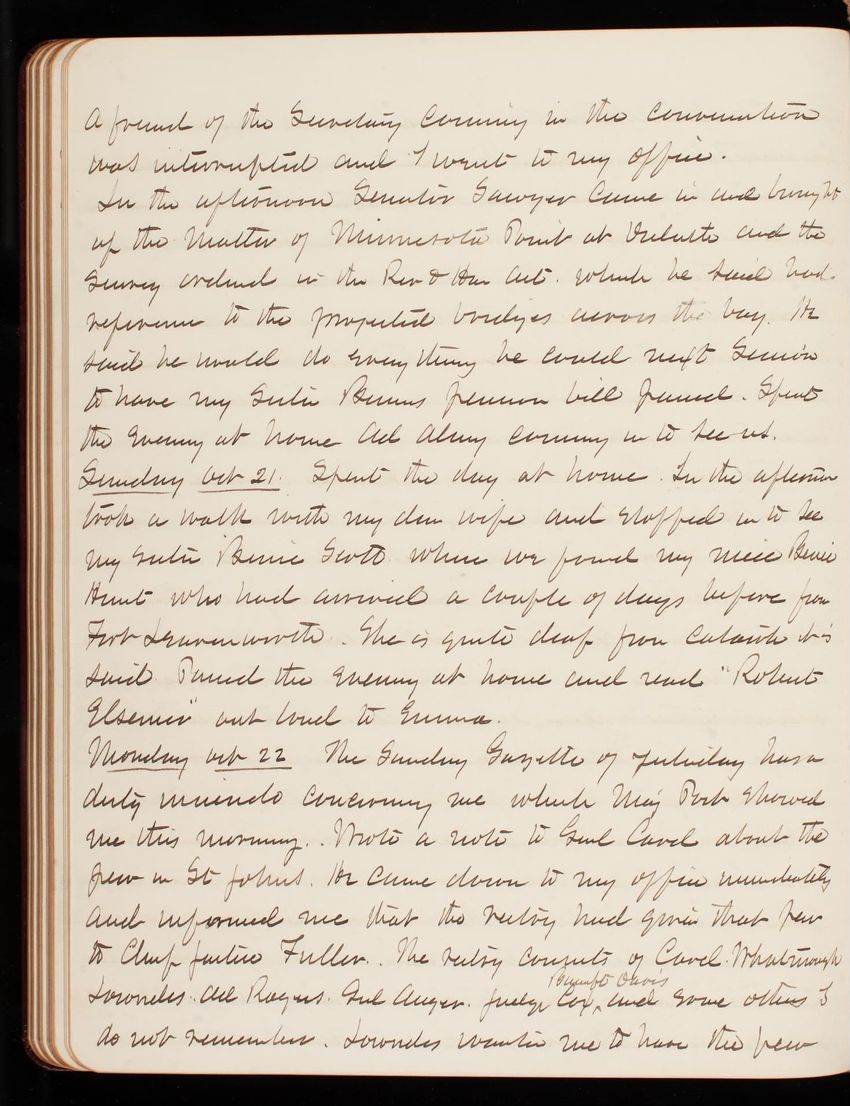 A friend of the Secretary coming in the conversation
was interrupted and I went to my office.
In the afternoon Senator Sawyer came in and brought
up the matter of Minnesota Point at Duluth and the
survey ordered in the Riv & Har Act. which he said had
reference to the projected bridges across the bay. He
said he would do everything he could next session
to have my sister pension bill passed. Spent
the evening at home Col Alexy coming in to see us.
Sunday Oct 21. Spent the day at home. In the afternoon
took a walk with my dear wife and stopped in to see
my sister Bessie Scott where we found my niece Bessie
Hunt who had arrived a couple of days before from
Fort Leavenworth. She is quite deaf from catarrh it is
said. Passed the evening at home and read "Robert
Elsemir" out loud to Emma.
Monday Oct 22 The Sunday Gazette of yesterday has a
dirty inuendo concerning me which Maj Post showed
me this morning. Wrote a note to Genl Card about the
pew in St Johns. He came down to my office immediately
and informed me that the vestry had given that pew
to Chief Justice Fuller. The vestry consists of Card. Whatmough
Bancroft Davis
Lowndes. Col Rogers. Genl Auger. Judge Cox, and some others I
do not remember. Lowndes wanted me to have the pew